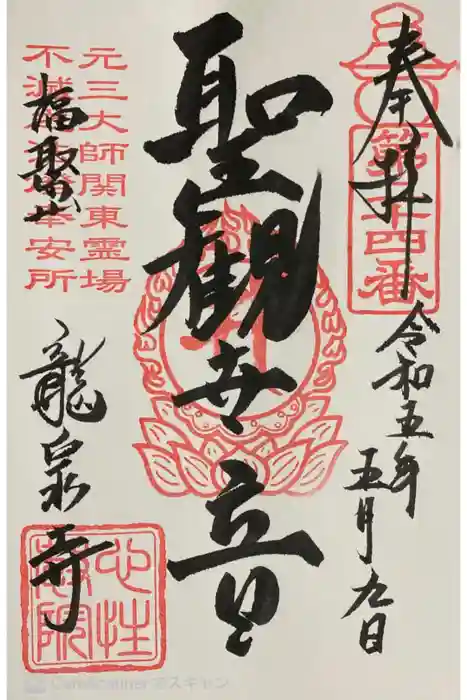 奉拝
第三十四番
令和五年
五月九日
聖観世音
元三大師関東霊場
不滅之法燈奉安所
福聚山
龍泉寺
心性
院
CamScanner でスキャン